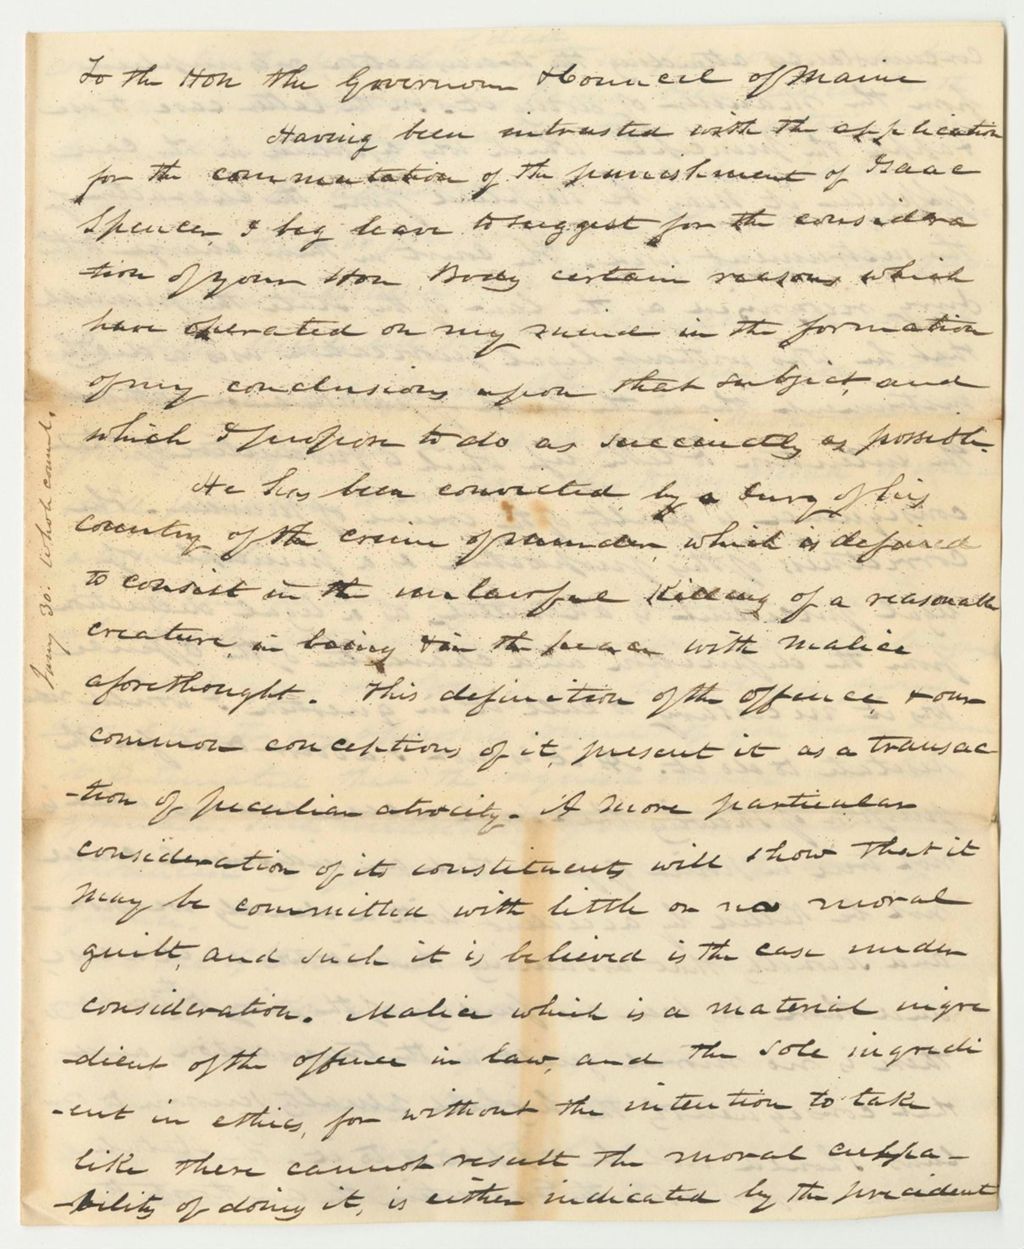 To the Hon the Governour & Council of Maine
Having been intrusted with the application
for the commutation of the punishment of Isaac
Spencer, I beg leave to suggest for the considera
-tion of your Hon Body certain reasons which
have operated on my mind in the formation
of my conclusions upon that subject, and
which I propose to do as succinctly as possible.
He has been convicted by a Jury of his
country of the crime of murder, which is defined
to consist in the unlawful killing of a reasonable
creature, in being & in the peace with malice
aforethought. This definition of the offence, & our
common conceptions of it, present it as a transac
-tion of peculiar atrocity. A more particular
consideration of its constituents will show that it
may be committed with little or no moral
guilt, and such it is believed is the case under
consideration. Malice which is a material ingre
-dient of the offence in law, and the sole ingredi
-ent in ethics, for without the intention to take
like there cannot result the moral culpa-
-bility of doing it, is either indicated by the precedent
Jany 30. Whole council.